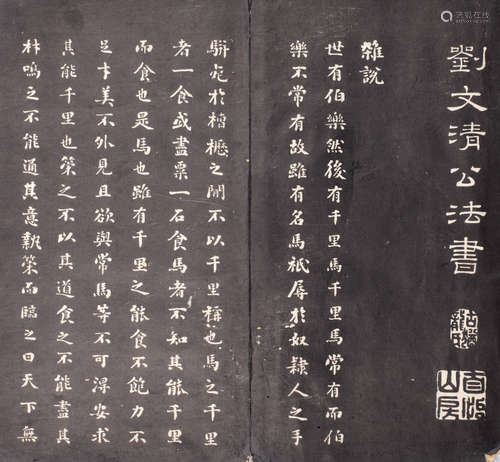 劉文清公法書
雜說
世有伯樂然後有千里馬千里馬常有而伯
樂不常有故雖有名馬祇辱於奴隸人之手
駢死於槽櫪之閒不以千里稱也馬之千里
者一食或盡粟一石食馬者不知其能千里
而食也是馬也雖有千里之能食不飽力不
足才美不外見且欲與常馬等不可得安求
其能千里也策之不以其道食之不能盡其
材鳴之不能通其意執策而臨之曰天下無